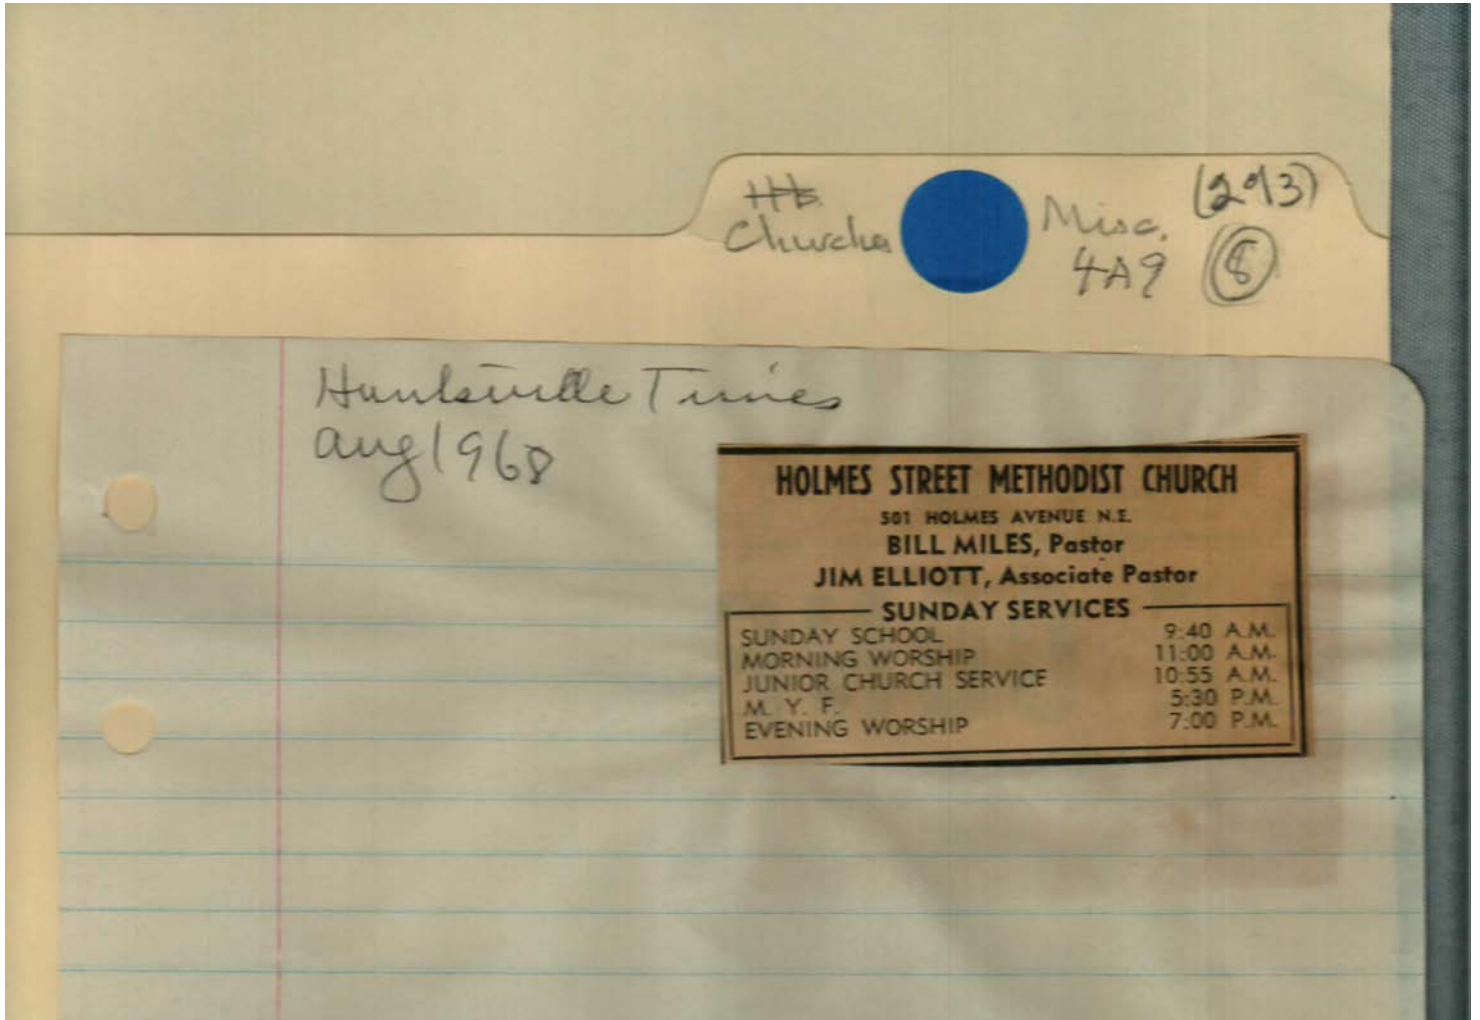 Churches
Misc.
(293)
4A9
8
Huntsville Times
Aug 1968
HOLMES STREET METHODIST CHURCH
501 HOLMES AVENUE N.E.
BILL MILES, Pastor
JIM ELLIOTT, Associate Pastor
SUNDAY SERVICES
SUNDAY SCHOOL 9:40 A.M.
MORNING WORSHIP 11:00 A.M.
JUNIOR CHURCH SERVICE 10:55 A.M.
M. Y. F. 5:30 P.M.
EVENING WORSHIP 7:00 P.M.